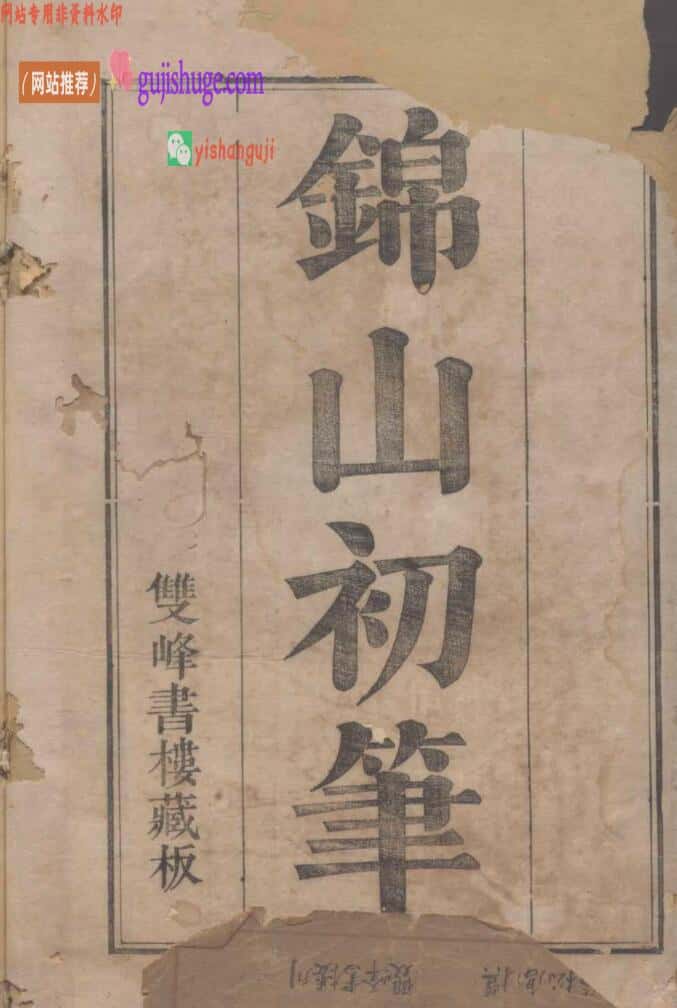 网站专用非资料水印
（网站推荐）
gujishuge.com
yishanguji
錦山初筆
雙峰書樓藏板